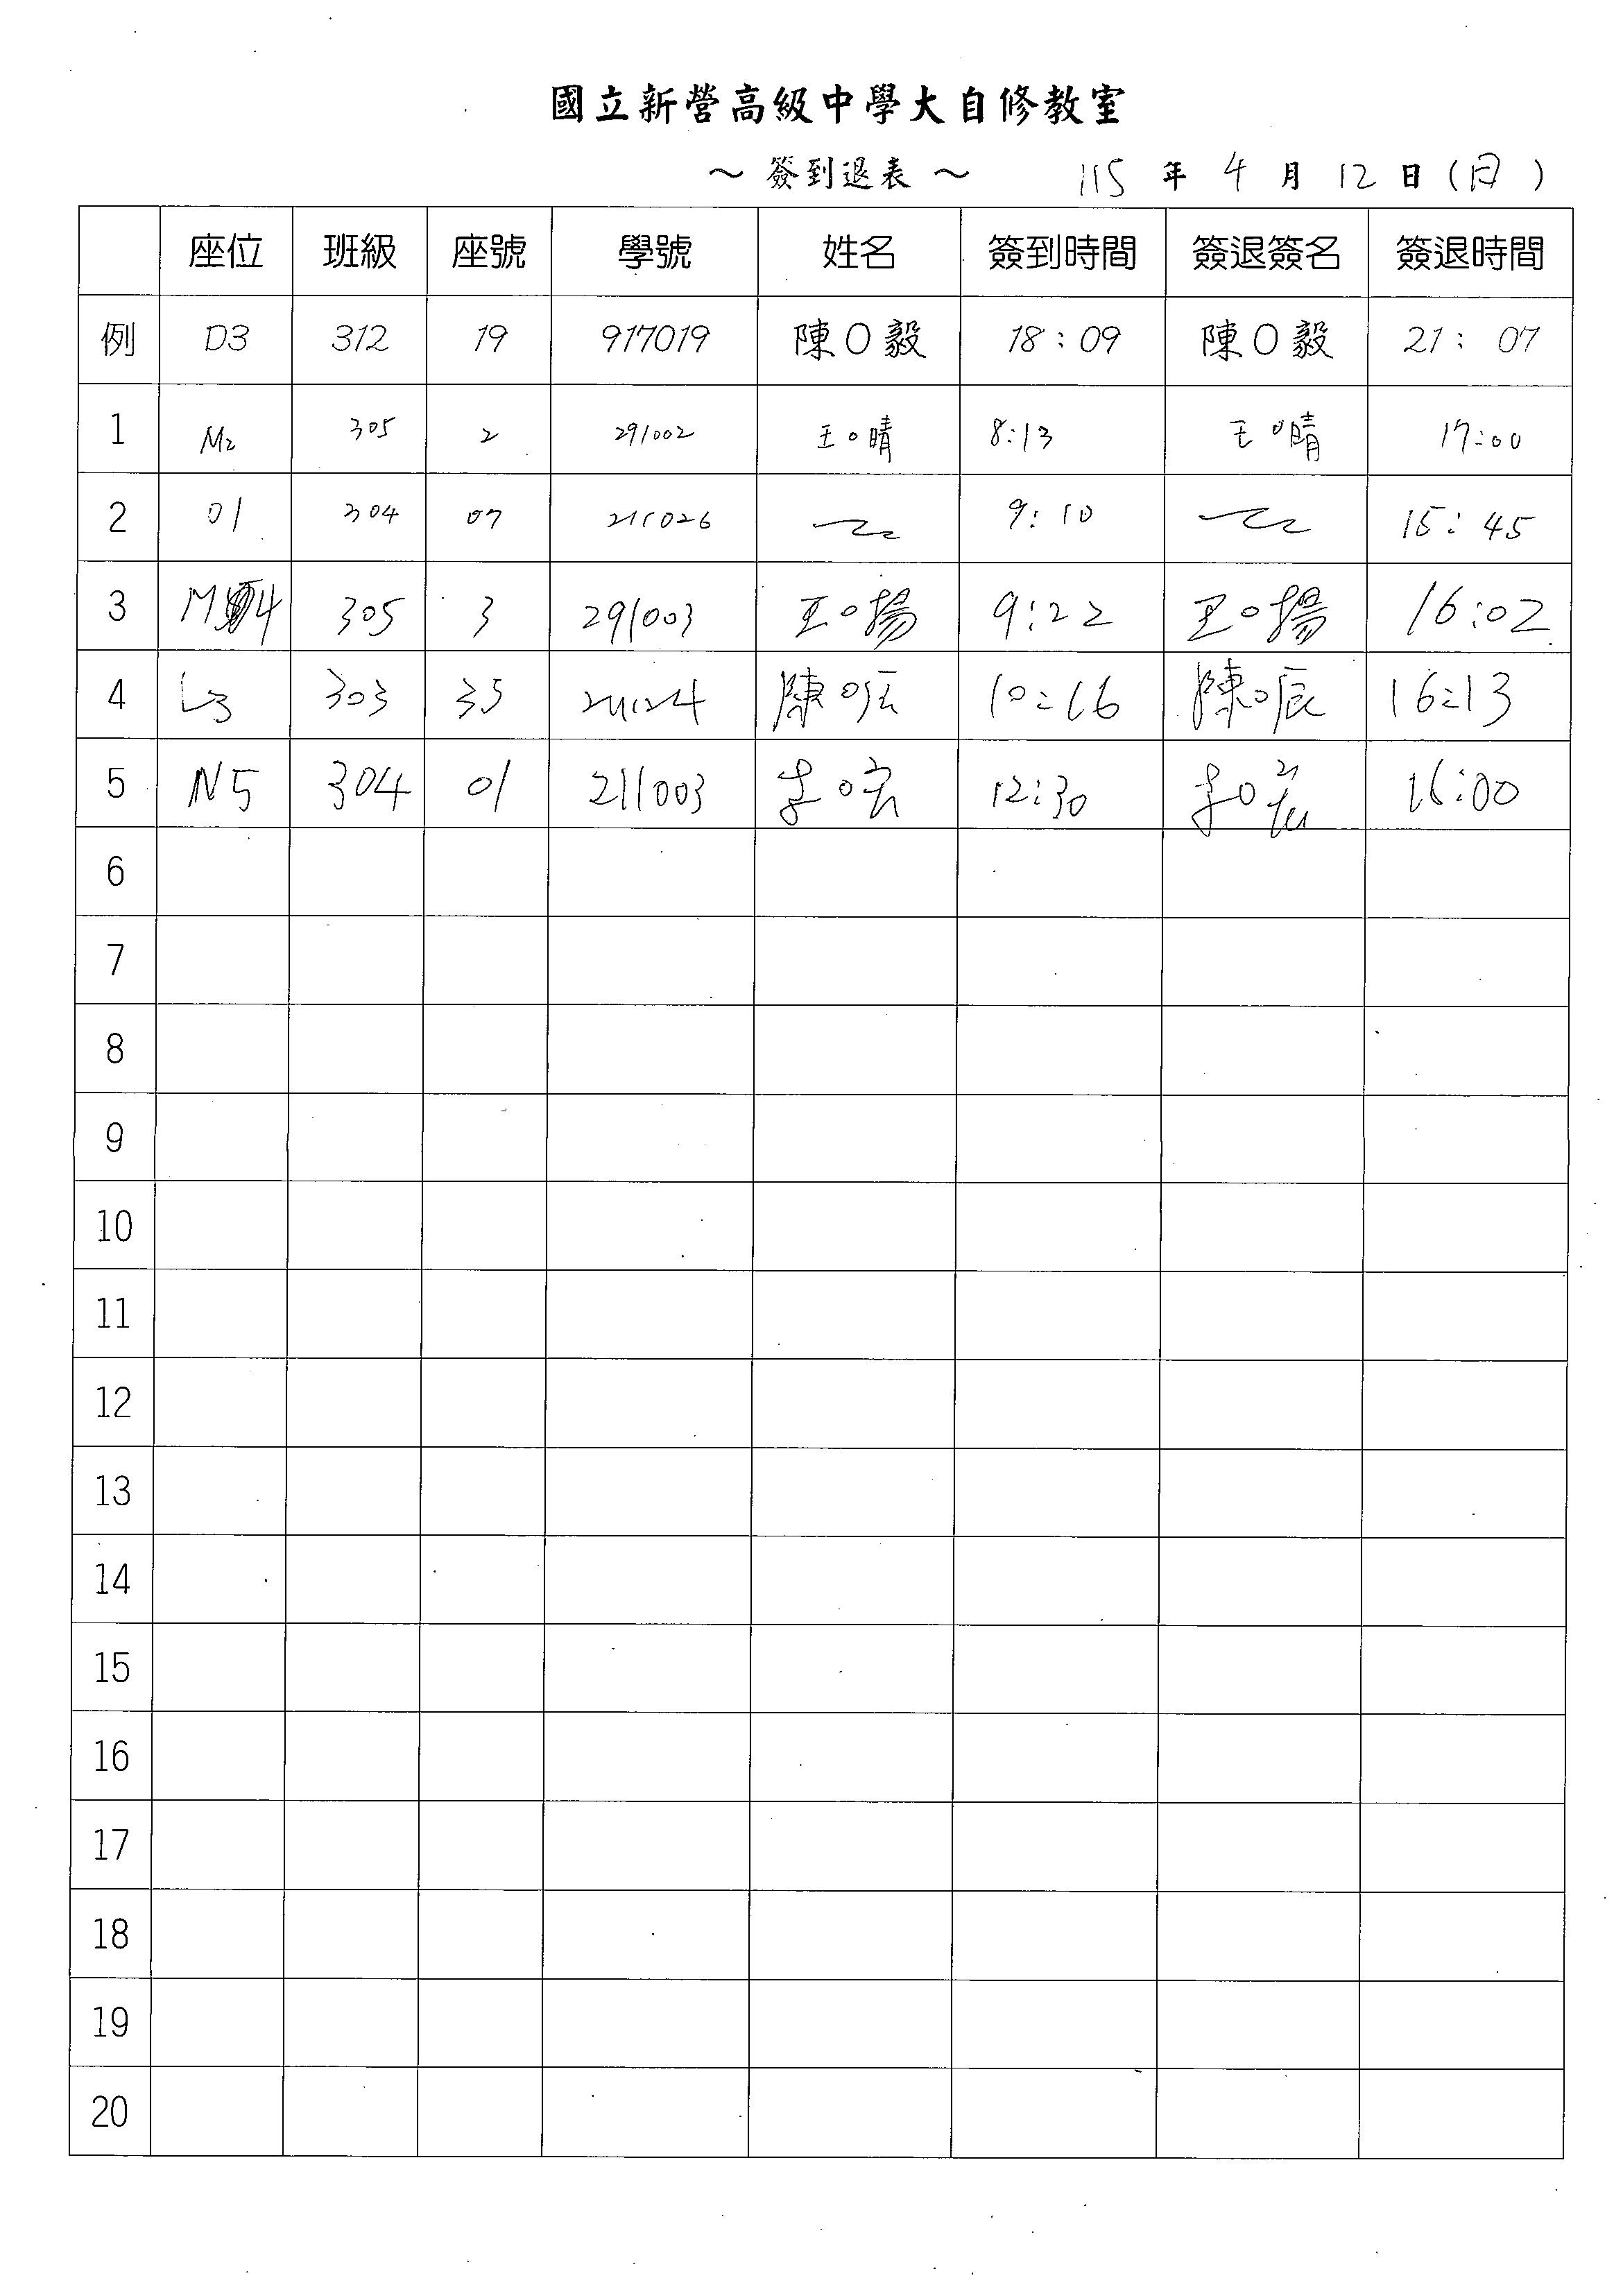 國立新營高級中學大自修教室
～ 簽到退表 ～ 115 年 4 月 12 日 (日)
座位 班級 座號 學號 姓名 簽到時間 簽退簽名 簽退時間
例 D3 312 19 917019 陳O毅 18:09 陳O毅 21:07
1 M2 305 2 291002 王O晴 8:13 王O晴 17:00
2 01 304 07 211026 9:10 15:45
3 M4 305 3 291003 王O揚 9:22 王O揚 16:02
4 L3 303 35 陳O宏 10:16 陳O宸 16:13
5 N5 304 01 211003 李O宏 12:30 李O宏 16:00
6
7
8
9
10
11
12
13
14
15
16
17
18
19
20